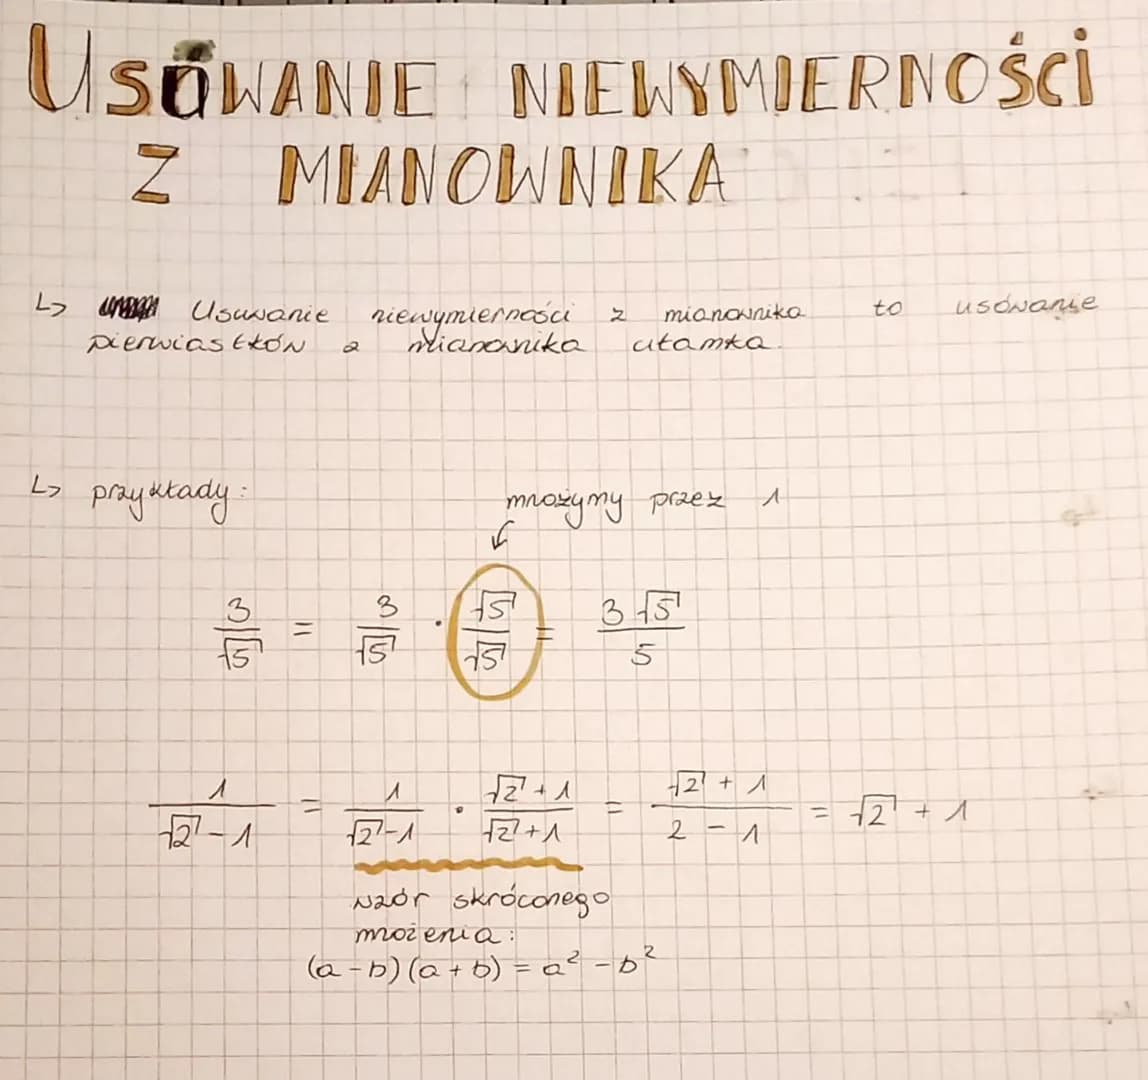 USUWANIE NIEWYMIERNOŚCI
Z MIANOWNIKA
↳ Usuwanie niewymierności z mianownika to usówanie
pierwiastków z mianownika ułamka.
↳ przykłady:
mnożymy przez 1
3/√5 = 3/√5 · √5/√5 = 3√5/5
1/(√2 - 1) = 1/(√2 - 1) · (√2 + 1)/(√2 + 1) = (√2 + 1)/(2 - 1) = √2 + 1
wzór skróconego
mnożenia:
(a - b)(a + b) = a² - b²